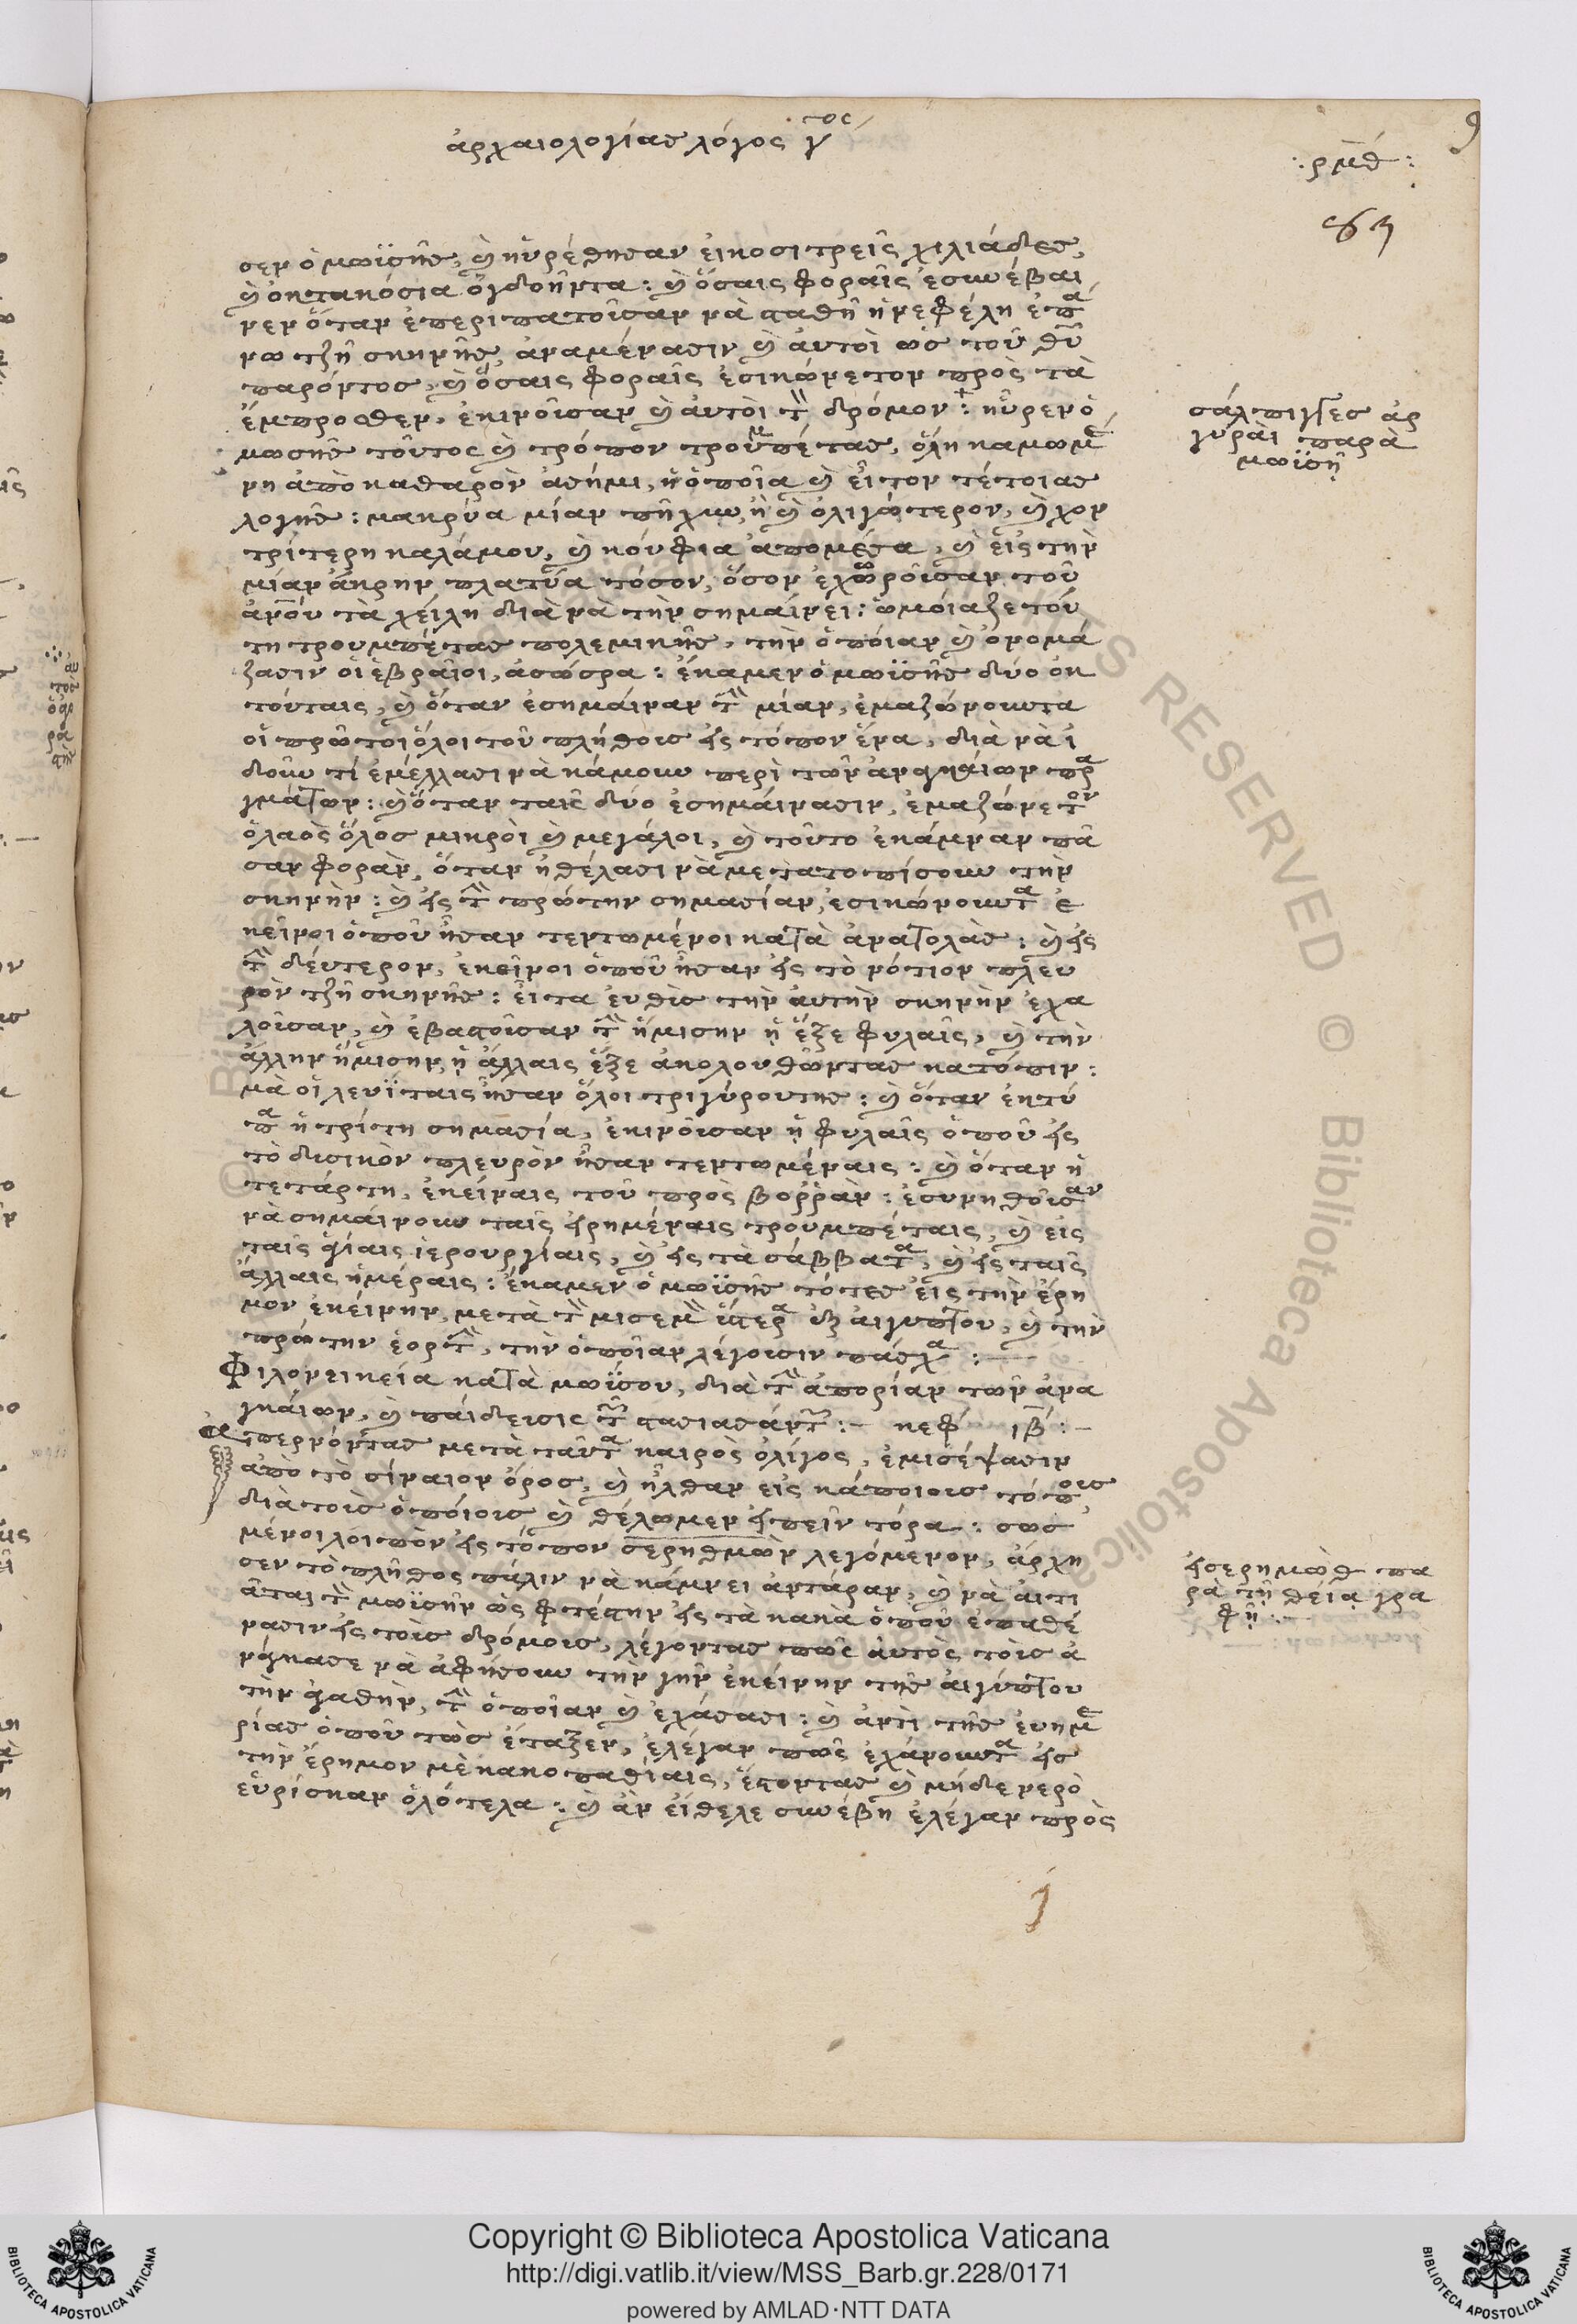 ἀρχαιολογίας λόγος γ^ος
:ρμθ:
σεν ὁ μωϋσῆς, καὶ ηὑρέθησαν εἰκοσιτρεῖς χιλιάδες,
καὶ ὀκτακόσια ὀγδοῆντα: καὶ ὅσαις φοραῖς ἐσυνέβαι
νεν ὅταν ἐπεριπατοῦσαν νὰ σταθῆ ἡ νεφέλη ἐπά
νω τζῆ σκηνῆς, ἀναμένασιν καὶ ἀυτοὶ ὡς τοῦ θῦ
παρόντος, καὶ ὅσαις φοραῖς ἐσικώνετον πρὸς τὰ
ἔμπροσθεν, ἐκινοῦσαν καὶ ἀυτοὶ τὸν δρόμον: ηὗρεν ὁ
μωσῆς τοῦτος καὶ τρόπον τρουμπέτας, ὅλη καμωμέ
νη ἀπὸ καθαρὸν ἀσήμι, ἡ ὁποῖα καὶ εἶτον τέτοιας
λογῆς: μακρύα μίαν πῆχυν, ἢ καὶ ὀλιγώτερον, καὶ χον
τρίτερη καλάμου, καὶ κούφια ἀπομέσα, καὶ εἰς τὴν
μίαν ἄκρην πλατῦα τόσον, ὅσον ἐχωροῦσαν τοῦ
ἀνοῦ τὰ χείλη διὰ νὰ τὴν σημαίνει: ὡμοίαζε τού
τη τρουμπέτας πολεμικῆς, τὴν ὁποίαν καὶ ὀνομά
ζασιν οἱ ἑβραῖοι, ἀσώσρα: ἔκαμεν ὁ μωϋσῆς δύο ἐκ
τούταις, καὶ ὅταν ἐσημάιναν τὴν μίαν, ἐμαζώνουντα
οἱ πρῶτοι ὅλοι τοῦ πλήθους εἰς τόπον ἕνα, διὰ νὰ ἰ
δοῦν τί ἐμέλλασι νὰ κάμουν περὶ τῶν ἀναγκαίων πρα
γμάτων: καὶ ὅταν ταῖς δύο ἐσημάινασιν, ἐμαζώνετον
ὁ λαὸς ὅλος μικρὸι καὶ μεγάλοι, καὶ τοῦτο ἐκάμναν πᾶ
σαν φορὰν, ὅταν ἠθέλασι νὰ μετατοπίσουν τὴν
σκηνὴν: καὶ εἰς τὴν πρώτην σημασίαν, ἐσικώνουντα ἐ
κεῖνοι ὁποῦ ἦσαν τεντωμένοι κατὰ ἀνατολὰς: καὶ εἰς
τὴν δέυτερον, ἐκεῖνοι ὁποῦ ἦσαν εἰς τὸ νότιον πλευ
ρὸν τζῆ σκηνῆς: εἶτα ἐυθὺς τὴν ἀυτὴν σκηνὴν ἐχα
λοῦσαν, καὶ ἐβαστοῦσαν τὴν ἥμισην ἡ ἕξε φυλαῖς, καὶ τὴν
ἄλλην ἥμισην ἡ ἄλλαις ἕξε ἀκολουθῶντας κατόπιν:
μὰ οἱ λευΐταις ἦσαν ὅλοι τριγύρουτης: καὶ ὅταν ἐκτύ
πα ἡ τρίτη σημασία, ἐκινοῦσαν ἡ φυλαῖς ὁποῦ εἰς
τὸ δυσικὸν πλευρὸν ἦσαν τεντωμέναις: καὶ ὅταν ἡ
τετάρτη, ἐκείναις τοῦ πρὸς βορρὰν: ἐσυνηθοῦσαν
νὰ σημαίνουν ταῖς εἰρημέναις τρουμπέταις, καὶ εἰς
ταῖς ἁγίαις ἱερουργίαις, καὶ εἰς τὰ σάββατα, καὶ εἰς ταῖς
ἄλλαις ἡμέραις: ἔκαμεν ὁ μωϋσῆς τότες εἰς τὴν ἔρη
μον ἐκείνην, μετὰ τὸν μισεμὸν ὕστερα ἐξ αἰγύπτου, καὶ τὴν
πρώτην ἑορτὴν, τὴν ὁποῖαν λέγουσιν πάσχα:—
Φιλονεικεία κατὰ μωϋσου, διὰ τὴν ἀπορίαν τῶν ἀνα
γκάιων, καὶ πάιδευσις τῶν στασιασάντων:— κεφ ιβ:—
ἀπερνόντας μετὰ ταῦτα καιρὸς ὀλίγος, ἐμισέψασιν
ἀπὸ τὸ σίναιον ὄρος, καὶ ἦλθαν εἰς κάποιους τόπους
διὰ τοὺς ὁποίους καὶ θέλωμεν εἰπεῖν τόρα: σωσ
μένοι λοιπὸν εἰς τόπον σερηθμῶν λεγόμενον, ἄρχη
σεν τὸ πλῆθος πάλιν νὰ κάμνει ἀντάραν, καὶ νὰ ἀιτι
ᾶται τὸν μωϋσῆν ὡς φτέστην εἰς τὰ κακὰ ὁποῦ ἐπαθέ
νασιν εἰς τοὺς δρόμους, λέγοντας πῶς ἀυτὸς τοὺς ἀ
νάγκασε νὰ ἀφήσουν τὴν γῆν ἐκείνην τῆς αἰγύπτου
τὴν ἀγαθὴν, τὴν ὁποῖαν καὶ ἐχάσασι: καὶ ἀντὶ τῆς ἐυημε
ρίας ὁποῦ τὼς ἔταξεν, ἐλέγαν πῶς ἐχάνουντα εἰς
τὴν ἔρημον μὲ κακοπαθίαις, ἔστοντας καὶ μήδε νερὸ
εὑρίσκαν ὁλότελα: καὶ ἂν εἴθελε συνέβη ἐλέγαν πρὸς
σάλπιγγες ἀρ
γυραὶ παρὰ
μωϋσῆ
εἰσερημὼθ πα
ρὰ τῆ θεία γρα
φῆ:—
Copyright © Biblioteca Apostolica Vaticana
http://digi.vatlib.it/view/MSS_Barb.gr.228/0171
powered by AMLAD·NTT DATA
BIBLIOTECA APOSTOLICA VATICANA
BIBLIOTECA APOSTOLICA VATICANA